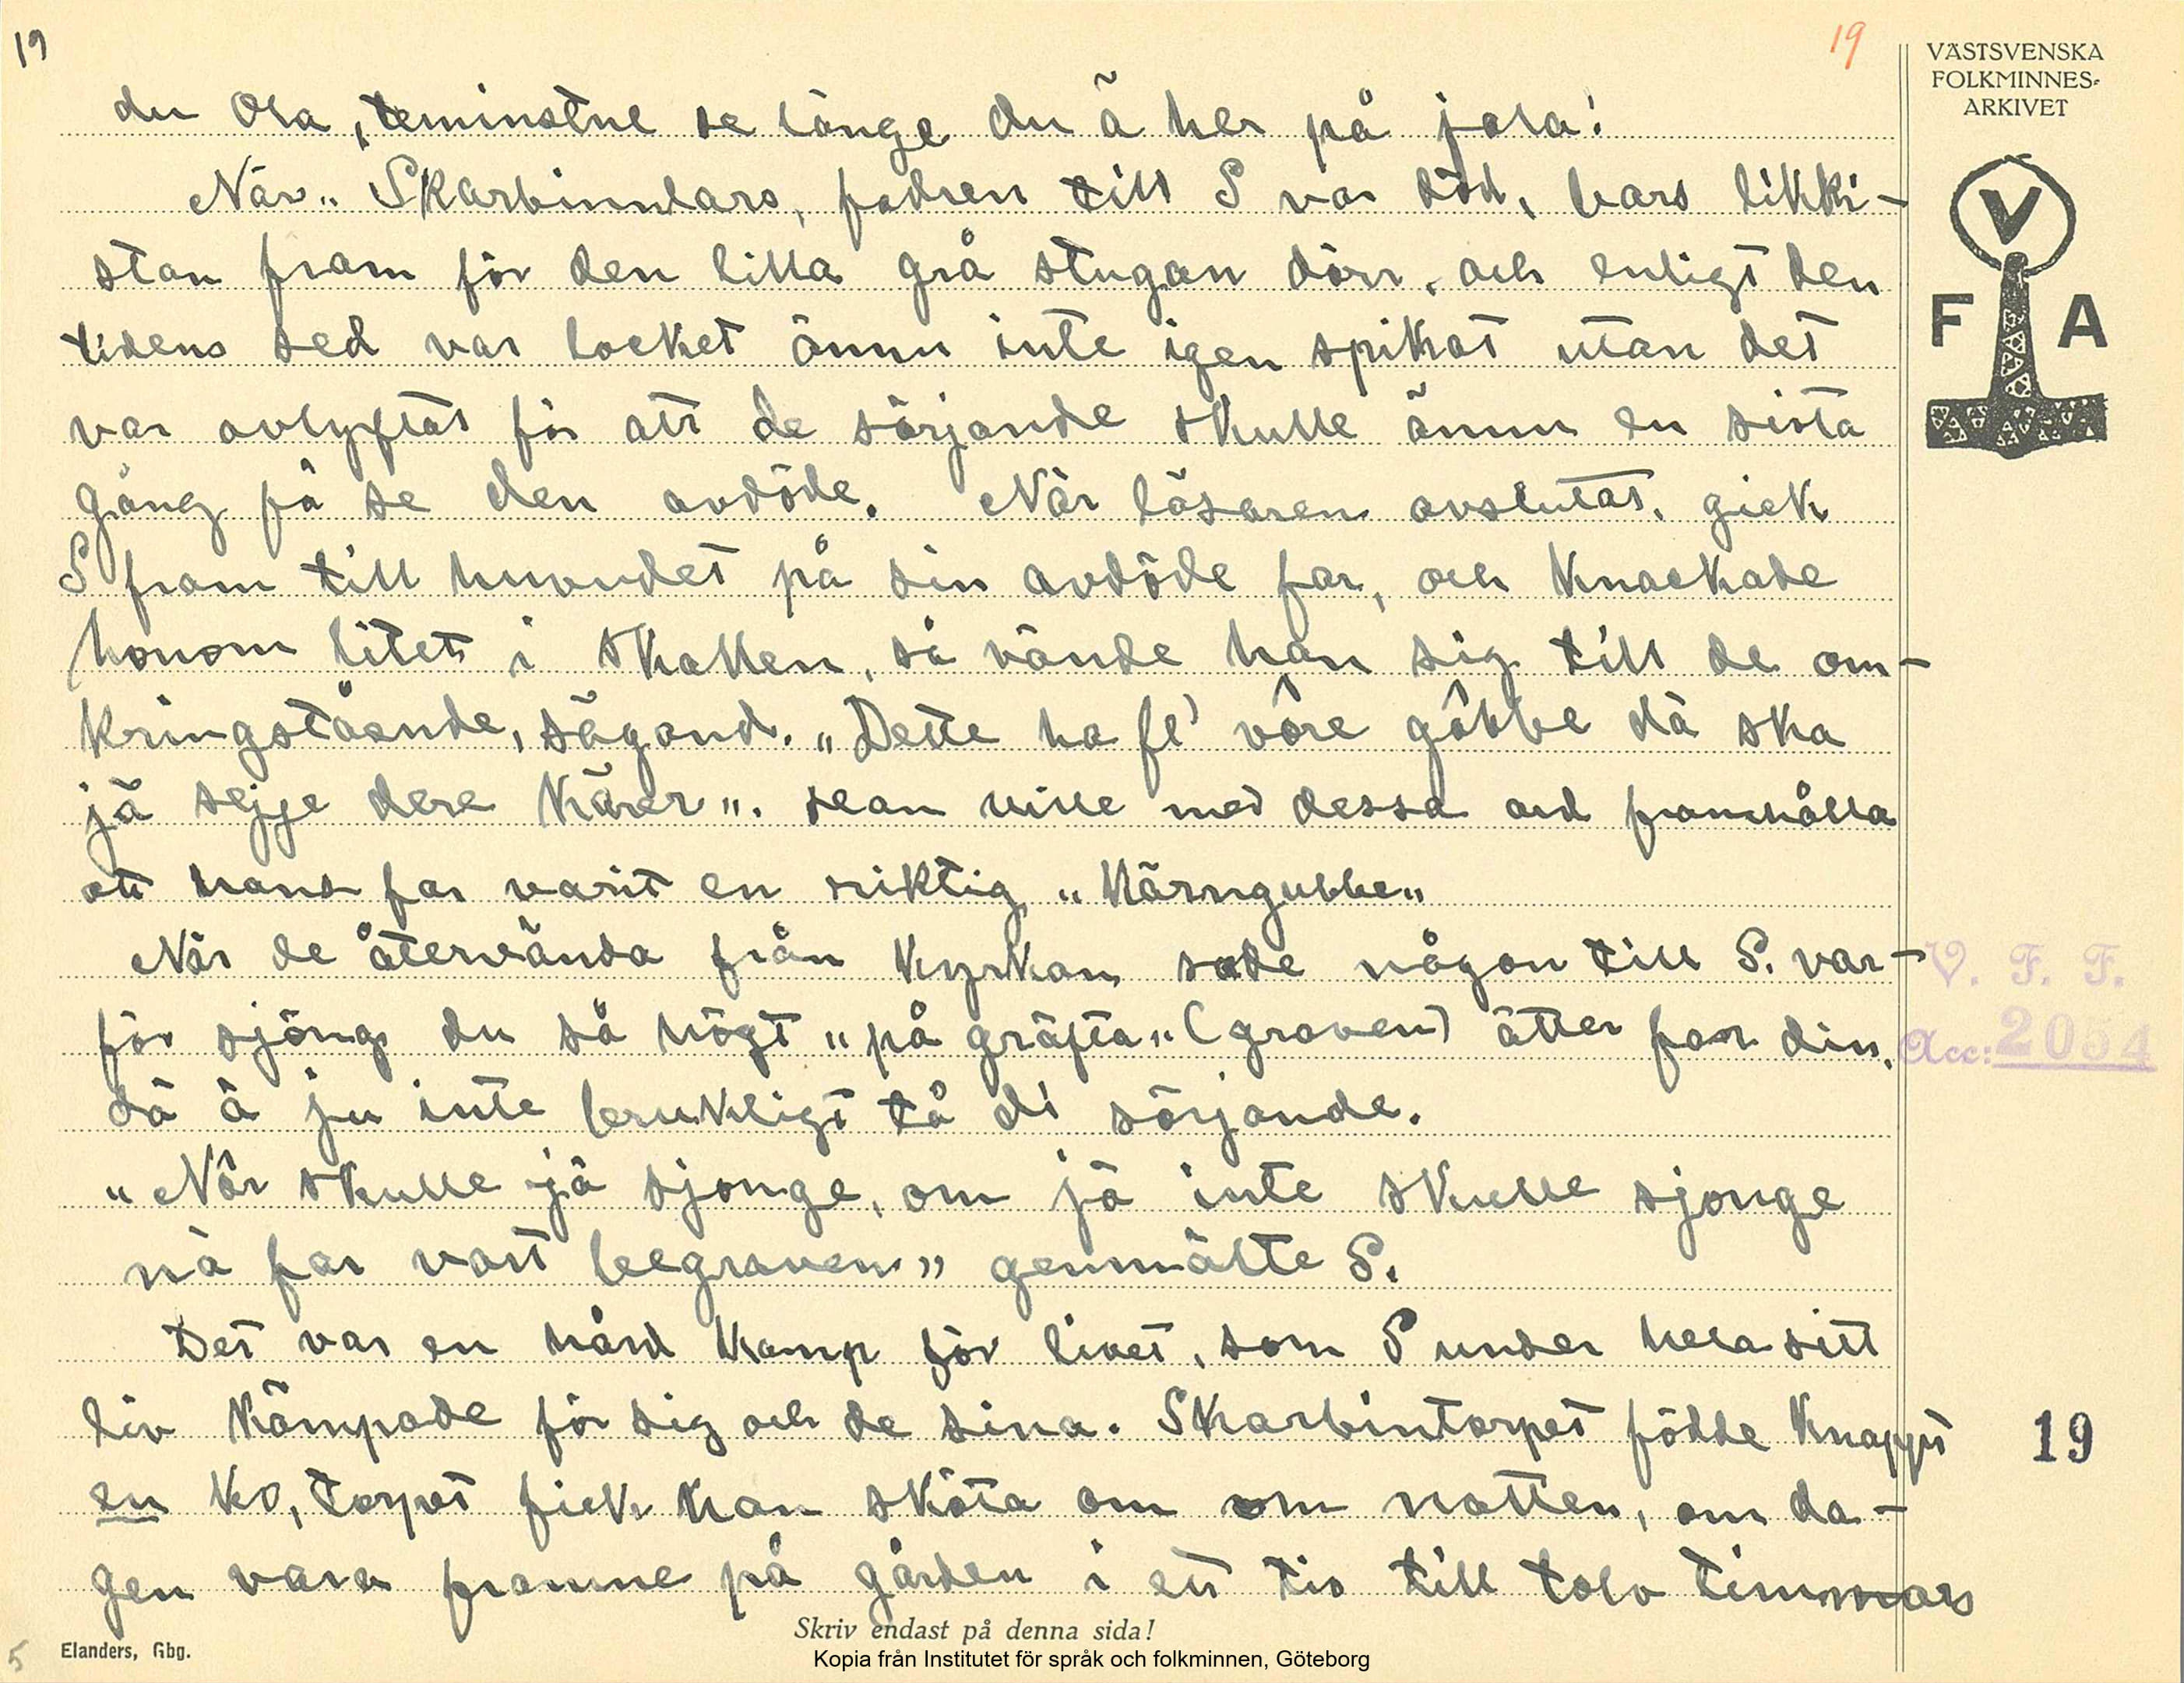 19
19
VÄSTSVENSKA
FOLKMINNES-
ARKIVET
V
F A
du Ola, teminstne se länge du ä her på jola!
När "Skarbinnlars, fadren till S var död, bars likki-
stan fram för den lilla grå stugan dörr, och enligt den
tidens sed var locket ännu inte igen spikat utan det
var avlyftat för att de sörjande skulle ännu en sista
gång få se den avdöde. När läsaren avslutat, gick
S fram till huvudet på sin avdöde far, och knackade
honom litet i skallen, så vände han sig till de om-
kringstående, sägand. "Dette ha fl' vôre gôbbe dä ska
jä sejje dere kärer". Han ville med dessa ord framhålla
att hans far varit en riktig "kärngubbe"
När de återvända från kyrkan sade någon till S. var-
för sjöng du så högt "på gräfta" (graven) ätter far din,
dä ä ju inte brukligt tå di sörjande.
"När skulle jä sjonge, om jä inte skulle sjonge
nä far vart begraven" genmälte S.
Det var en hård kamp för livet, som S under hela sitt
liv kämpade för sig och de sina. Skarbintorpet födde knappt
en ko, torpet fick han sköta om om natten, om da-
gen vara framme på gården i ett tio till tolv timmars
V. F. F.
Acc: 2054
19
Skriv endast på denna sida!
5 Elanders, Gbg.
Kopia från Institutet för språk och folkminnen, Göteborg